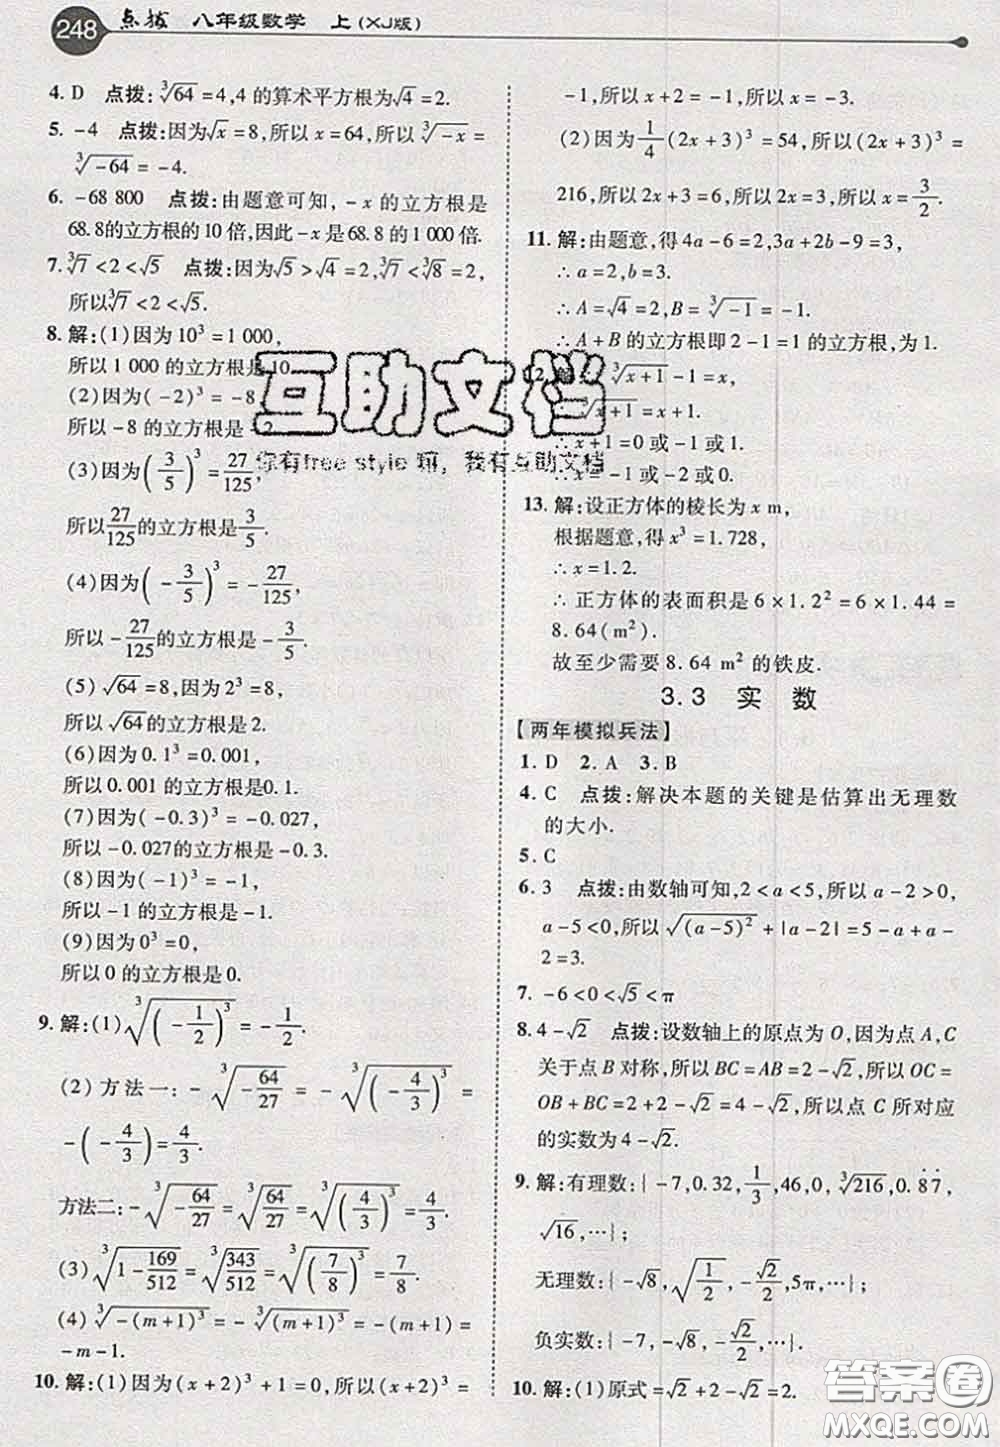 248 点拨 八年级数学 上(XJ版)
4. D 点拨:∛64=4,4的算术平方根为√4=2.
5. -4 点拨:因为√x=8,所以x=64,所以∛-x=
∛-64=-4.
6. -68 800 点拨:由题意可知,-x的立方根是
68.8的立方根的10倍,因此-x是68.8的1 000倍.
7. ∛7<2<√5 点拨:因为√5>√4=2,∛7<∛8=2,
所以∛7<2<√5.
8. 解:(1)因为10³=1 000,
所以1 000的立方根是10
(2)因为(-2)³=-8
所以-8的立方根是-2
(3)因为(3/5)³=27/125,
所以27/125的立方根是3/5.
(4)因为(-3/5)³=-27/125,
所以-27/125的立方根是-3/5.
(5)√64=8,因为2³=8,
所以√64的立方根是2.
(6)因为0.1³=0.001,
所以0.001的立方根是0.1.
(7)因为(-0.3)³=-0.027,
所以-0.027的立方根是-0.3.
(8)因为(-1)³=-1,
所以-1的立方根是-1.
(9)因为0³=0,
所以0的立方根是0.
9. 解:(1)∛(-1/2)³=-1/2.
(2)方法一:-∛-64/27=-∛(-4/3)³=
-(-4/3)=4/3.
方法二:-∛-64/27=∛64/27=∛(4/3)³=4/3.
(3)∛1-169/512=∛343/512=∛(7/8)³=7/8.
(4)∛-(m+1)³=-∛(m+1)³=-(m+1)=
-m-1.
10. 解:(1)因为(x+2)³+1=0,所以(x+2)³=
-1,所以x+2=-1,所以x=-3.
(2)因为1/4(2x+3)³=54,所以(2x+3)³=
216,所以2x+3=6,所以x=3/2.
11. 解:由题意,得4a-6=2,3a+2b-9=3,
∴a=2,b=3,
∴A=√4=2,B=∛-1=-1.
∴A+B的立方根即2-1=1的立方根,为1.
∛x+1-1=x,
∛x+1=x+1.
∴x+1=0或-1或1.
∴x=-1或-2或0.
13. 解:设正方体的棱长为x m,
根据题意,得x³=1.728,
∴x=1.2.
∴正方体的表面积是6×1.2²=6×1.44=
8.64(m²).
故至少需要8.64 m²的铁皮.
3.3 实 数
【两年模拟兵法】
1. D 2. A 3. B
4. C 点拨:解决本题的关键是估算出无理数
的大小.
5. C
6. 3 点拨:由数轴可知,2<a<5,所以a-2>0,
a-5<0,所以√(a-5)²+|a-2|=5-a+a-
2=3.
7. -6<0<√5<π
8. 4-√2 点拨:设数轴上的原点为O,因为点A,C
关于点B对称,所以BC=AB=2-√2,所以OC=
OB+BC=2+2-√2=4-√2,所以点C所对应
的实数为4-√2.
9. 解:有理数:{-7,0.32,1/3,46,0,∛216,0.8̇7̇,
√16,…};
无理数:{-√8,√1/2,-√2/2,5π,…};
负实数:{-7,-√8,-√2/2,…}.
10. 解:(1)原式=√2+2-√2=2.
互助文档
你有free style 嘛，我有互助文档
答案圈
MXQE.COM